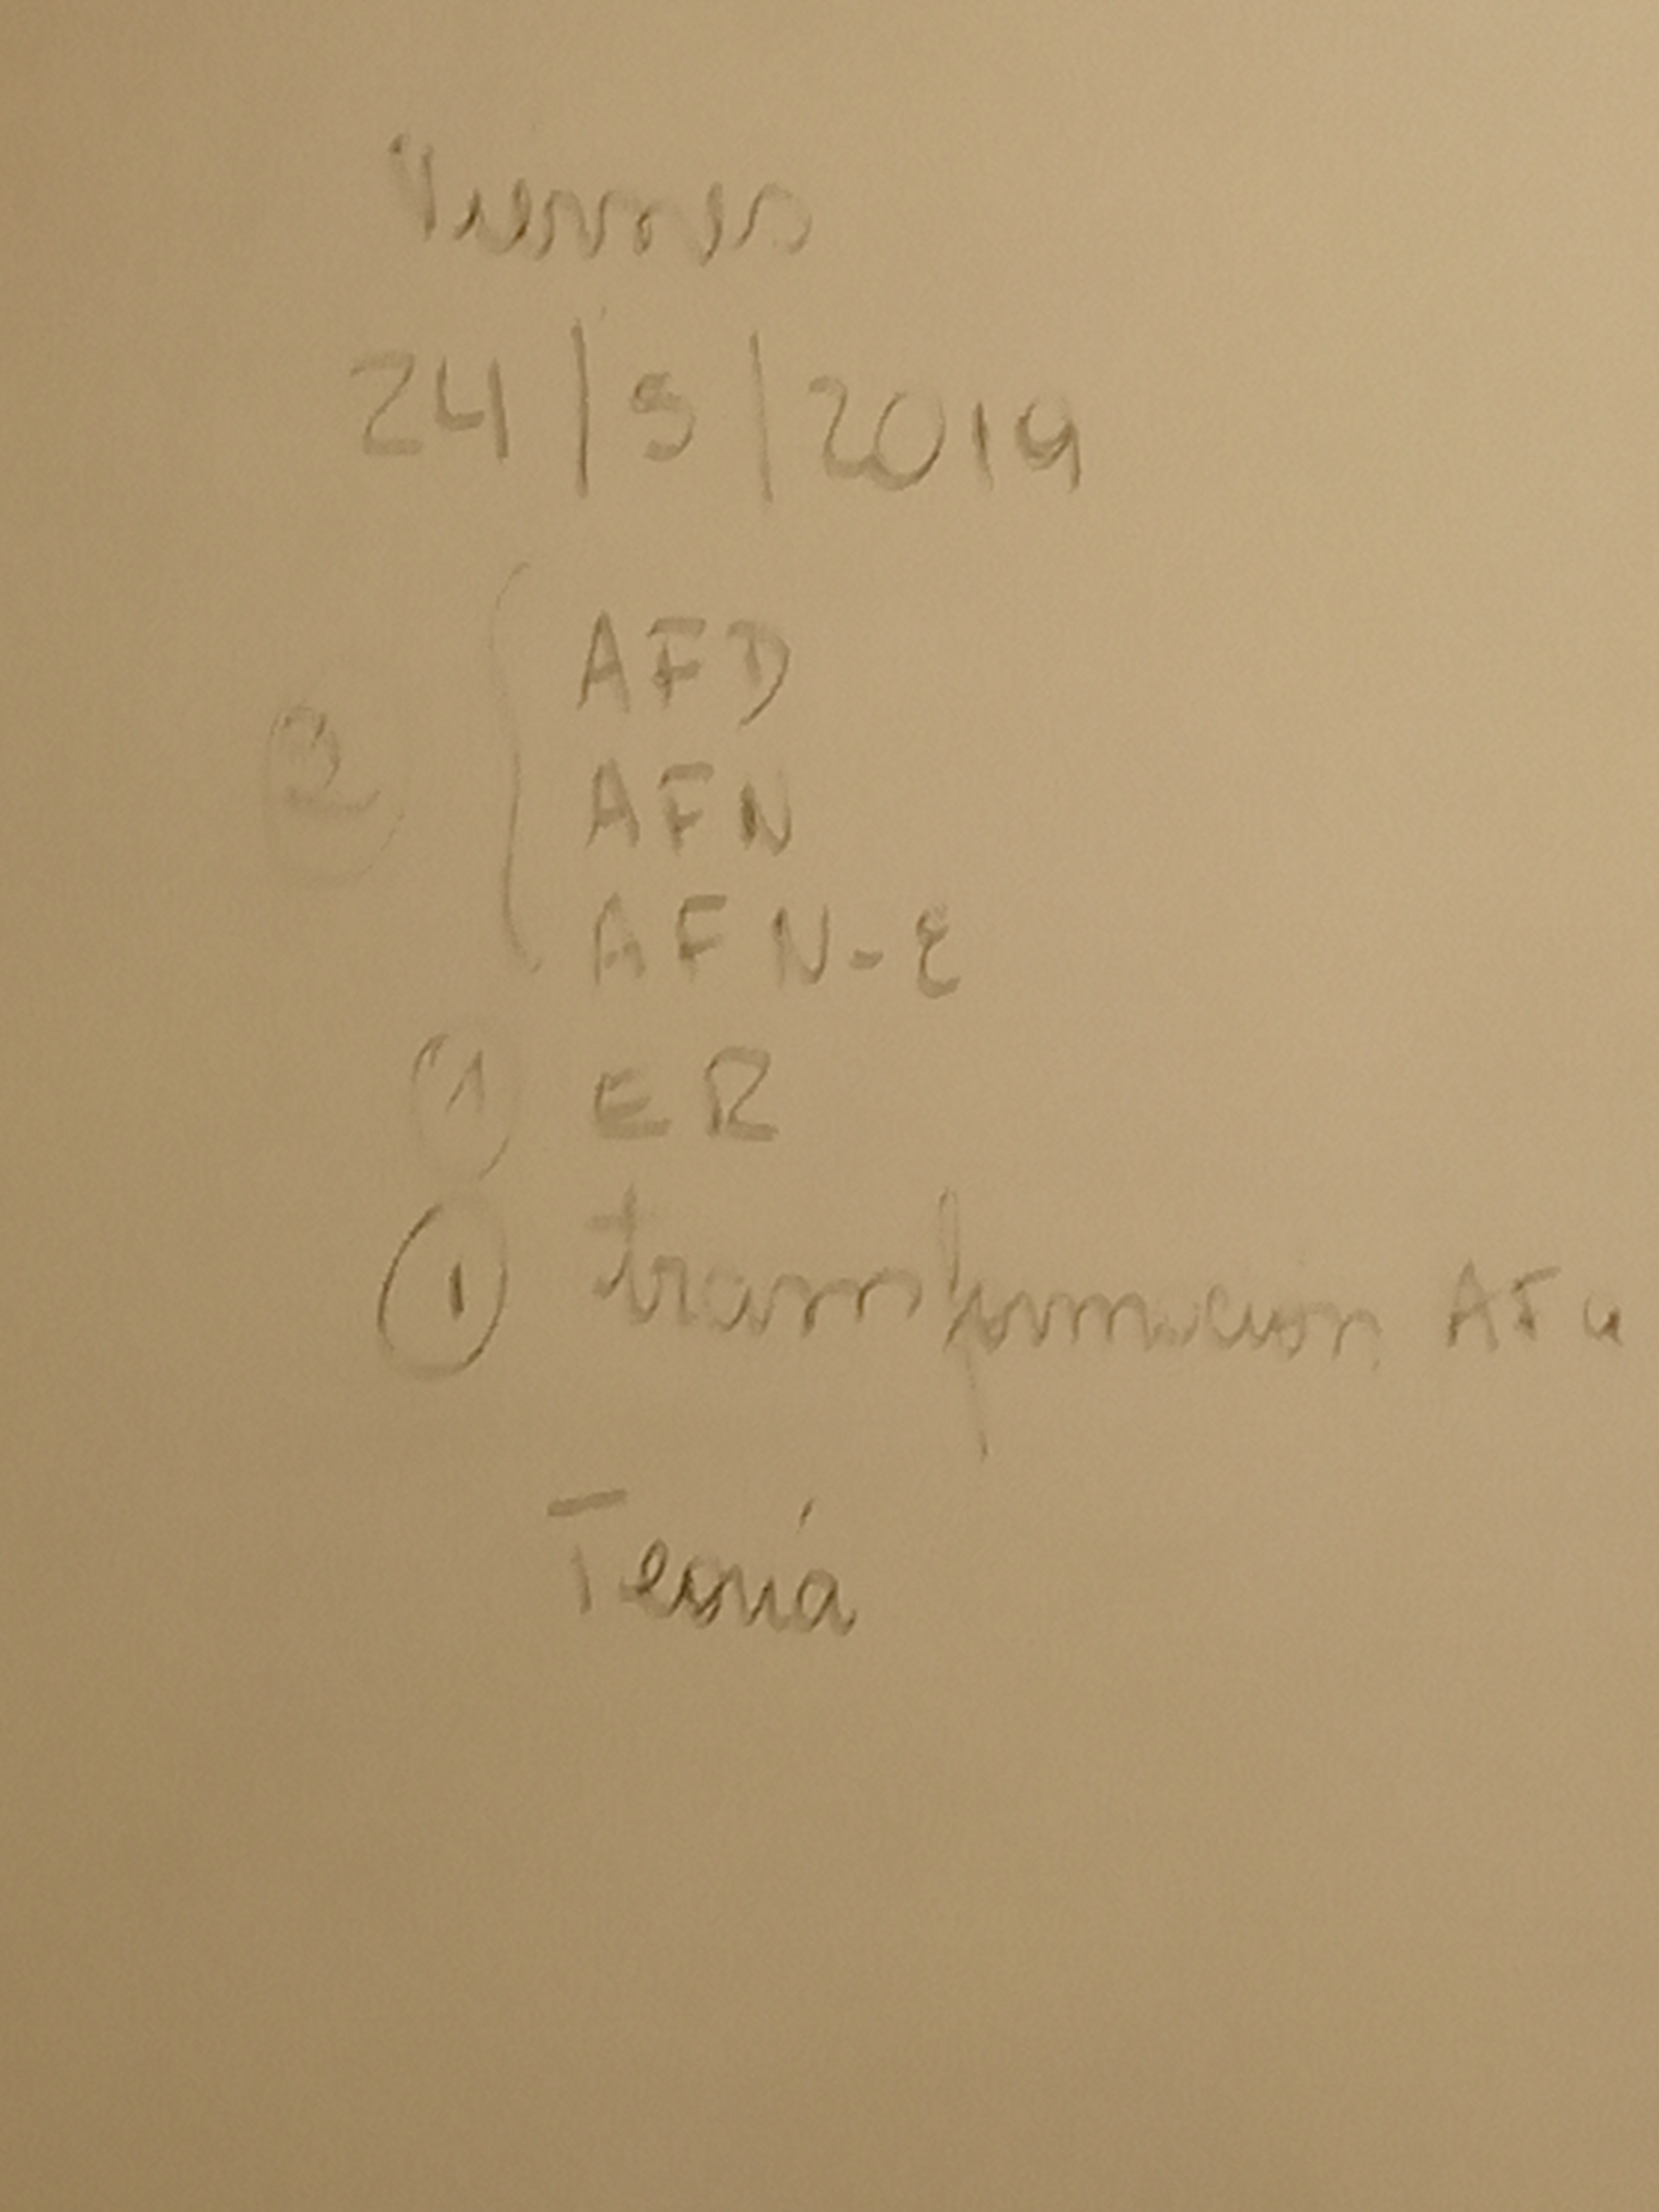 Viernes
24/5/2019
AFD
② AFN
AFN-ε
① ER
① transformación AF a
Teoría